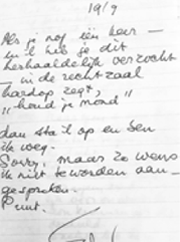 19/9
Als je nog één keer —
en 'k heb je dit
herhaaldelijk verzocht
— in de rechtzaal
hardop zegt,
„houd je mond"
dan sta 'k op en ben
ik weg.
Sorry, maar zo wens
ik niet te worden aan-
gesproken.
Punt.